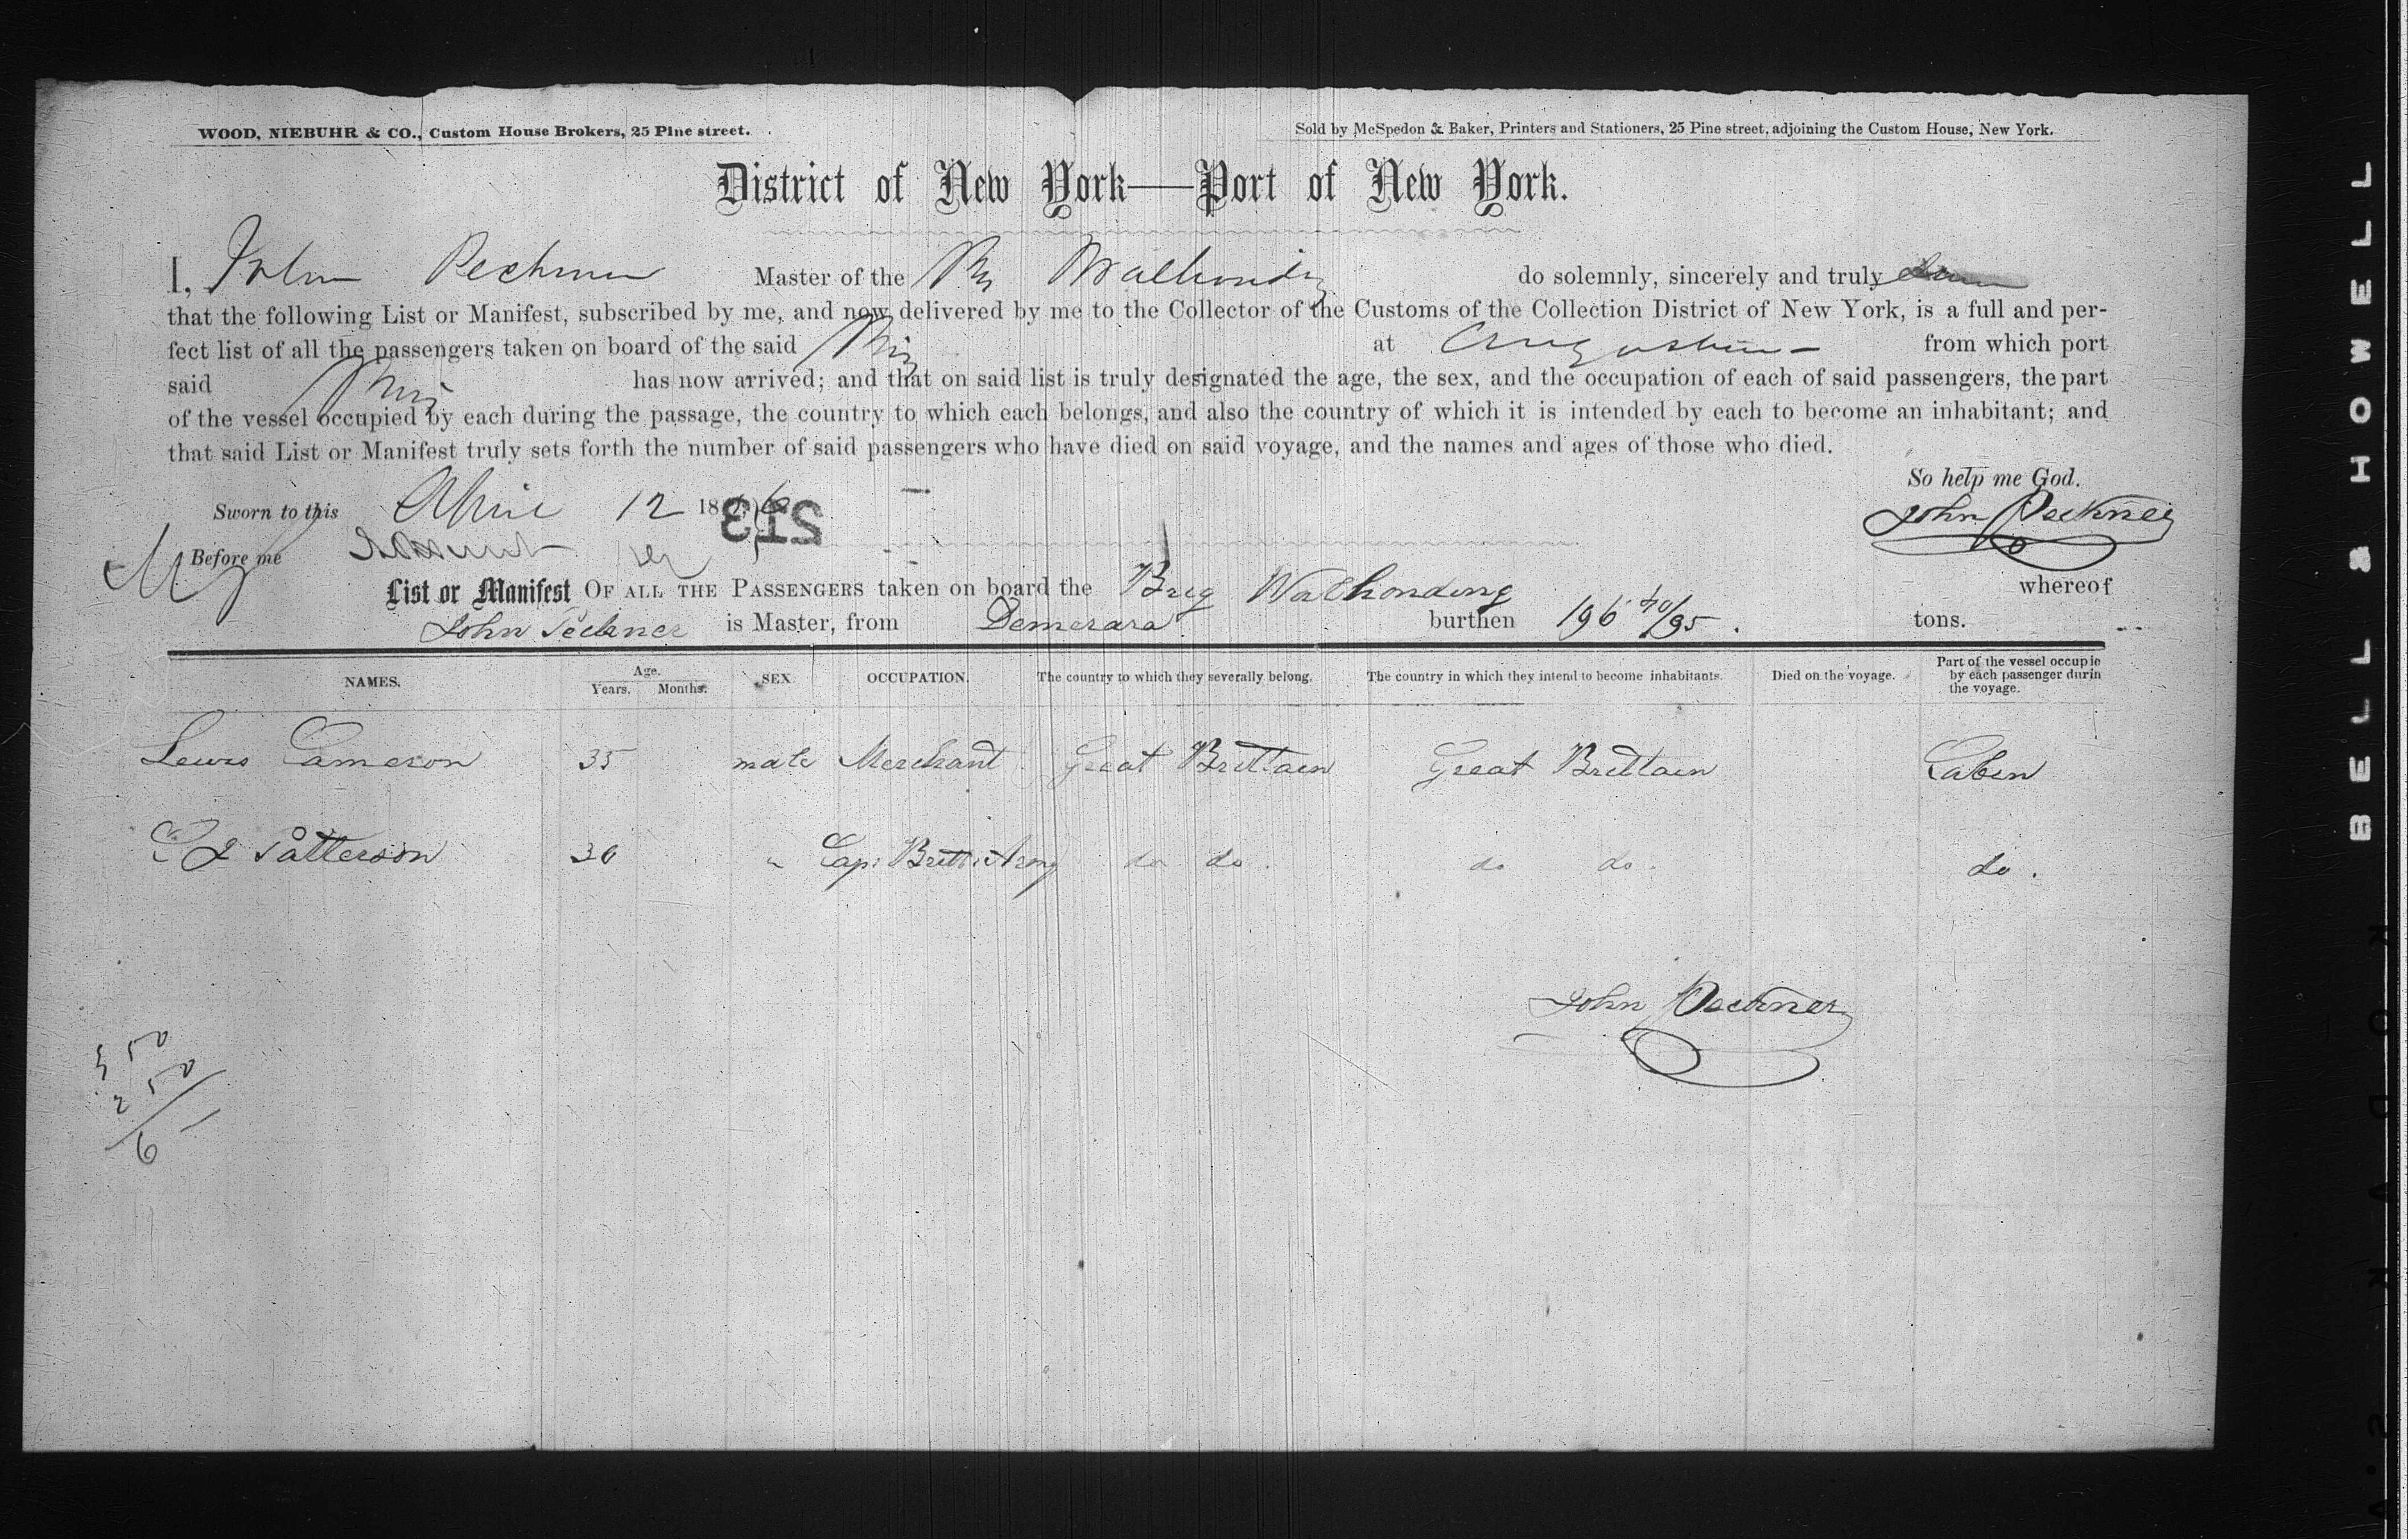 WOOD, NIEBUHR & CO., Custom House Brokers, 25 Pine street.
Sold by McSpedon & Baker, Printers and Stationers, 25 Pine street, adjoining the Custom House, New York.
District of New York—Port of New York.
I, John Peckner Master of the Br Walhonding do solemnly, sincerely and truly
that the following List or Manifest, subscribed by me, and now delivered by me to the Collector of the Customs of the Collection District of New York, is a full and per-
fect list of all the passengers taken on board of the said Brig at from which port
said Brig has now arrived; and that on said list is truly designated the age, the sex, and the occupation of each of said passengers, the part
of the vessel occupied by each during the passage, the country to which each belongs, and also the country of which it is intended by each to become an inhabitant; and
that said List or Manifest truly sets forth the number of said passengers who have died on said voyage, and the names and ages of those who died.
So help me God.
Sworn to this April 12 18
213
John Peckner
Before me
List or Manifest OF ALL THE PASSENGERS taken on board the Brig Walhonding whereof
John Peckner is Master, from Demerara burthen 196 40/95. tons.
NAMES. Age. Years. Months. SEX OCCUPATION. The country to which they severally belong. The country in which they intend to become inhabitants. Died on the voyage. Part of the vessel occupie by each passenger durin the voyage.
Lewis Cameron 35 male Merchant Great Brittain Great Brittain Cabin
C J Patterson 36 " Cap: Britt: Army do do. do do. do.
John Peckner
3 50
2 50
6
BELL & HOWELL